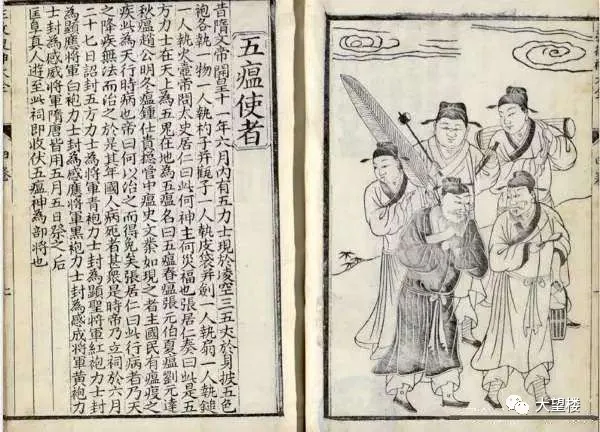 五瘟使者
昔隋文帝開皇十一年六月內有五力士現於凌空三五丈於身披五色
袍各執一物一人執杓子并罐子一人執皮袋并劍一人執扇一人執鎚
一人執火壺帝問太史居仁曰此何神主何災福也張居仁奏曰此是五
方力士在天上為五鬼在地為五瘟名曰五瘟春瘟張元伯夏瘟劉元達
秋瘟趙公明冬瘟鍾仕貴總管中瘟史文業如現之者主國民有瘟疫之
疾此為天行時病也帝曰何以治之而得免矣張居仁曰此行病者乃天
之降疾無法而治之於是其年國人病死者甚眾是時帝乃立祠於六月
二十七日詔封五方力士為將軍青袍力士封為顯聖將軍紅袍力士封
為顯應將軍白袍力士封為感應將軍黑袍力士封為感成將軍黃袍力
士封為感威將軍隋唐皆用五月五日祭之后
匡阜真人遊至此祠即收伏五瘟神為部將也
大望楼